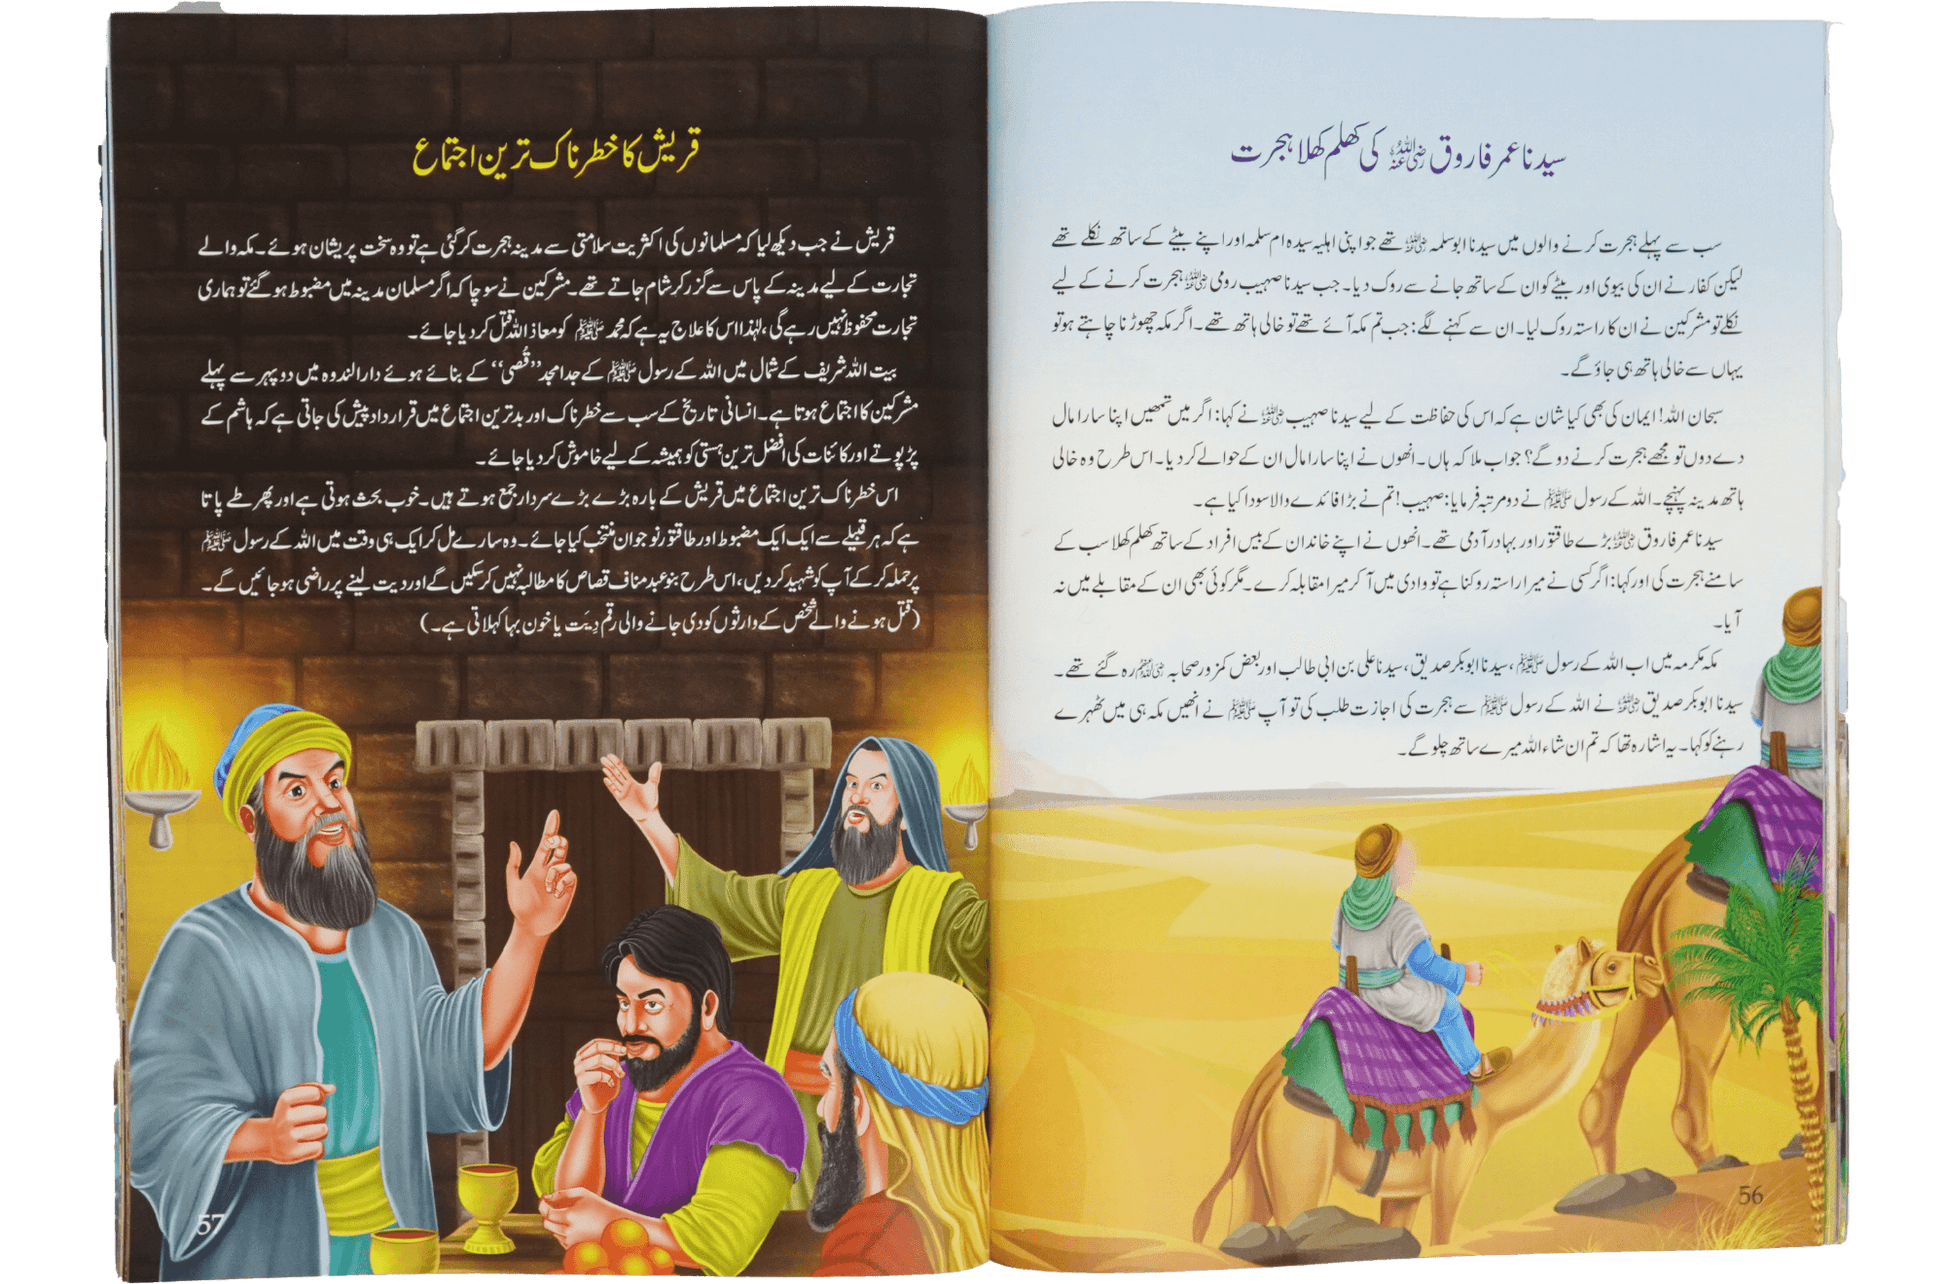 سیدنا عمر فاروق رضی اللہ عنہ کی کھلم کھلا ہجرت
سب سے پہلے ہجرت کرنے والوں میں سیدنا ابوسلمہ رضی اللہ عنہ تھے جو اپنی اہلیہ سیدہ ام سلمہ اور اپنے بیٹے کے ساتھ نکلے تھے
لیکن کفار نے ان کی بیوی اور بیٹے کو ان کے ساتھ جانے سے روک دیا۔ جب سیدنا صہیب رومی رضی اللہ عنہ ہجرت کرنے کے لیے
نکلے تو مشرکین نے ان کا راستہ روک لیا۔ ان سے کہنے لگے: جب تم مکہ آئے تھے تو خالی ہاتھ تھے۔ اگر مکہ چھوڑنا چاہتے ہو تو
یہاں سے خالی ہاتھ ہی جاؤ گے۔
سبحان اللہ! ایمان کی بھی کیا شان ہے کہ اس کی حفاظت کے لیے سیدنا صہیب رضی اللہ عنہ نے کہا: اگر میں تمھیں اپنا سارا مال
دے دوں تو مجھے ہجرت کرنے دو گے؟ جواب ملا کہ ہاں۔ انھوں نے اپنا سارا مال ان کے حوالے کر دیا۔ اس طرح وہ خالی
ہاتھ مدینہ پہنچے۔ اللہ کے رسول ﷺ نے دو مرتبہ فرمایا: صہیب! تم نے بڑا فائدے والا سودا کیا ہے۔
سیدنا عمر فاروق رضی اللہ عنہ بڑے طاقتور اور بہادر آدمی تھے۔ انھوں نے اپنے خاندان کے بیس افراد کے ساتھ کھلم کھلا سب کے
سامنے ہجرت کی اور کہا: اگر کسی نے میرا راستہ روکنا ہے تو وادی میں آ کر میرا مقابلہ کرے۔ مگر کوئی بھی ان کے مقابلے میں نہ
آیا۔
مکہ مکرمہ میں اب اللہ کے رسول ﷺ، سیدنا ابوبکر صدیق، سیدنا علی بن ابی طالب اور بعض کمزور صحابہ رضی اللہ عنہم رہ گئے تھے۔
سیدنا ابوبکر صدیق رضی اللہ عنہ نے اللہ کے رسول ﷺ سے ہجرت کی اجازت طلب کی تو آپ ﷺ نے انھیں مکہ ہی میں ٹھہرے
رہنے کو کہا۔ یہ اشارہ تھا کہ تم ان شاء اللہ میرے ساتھ چلو گے۔
56
قریش کا خطرناک ترین اجتماع
قریش نے جب دیکھ لیا کہ مسلمانوں کی اکثریت سلامتی سے مدینہ ہجرت کر گئی ہے تو وہ سخت پریشان ہوئے۔ مکہ والے
تجارت کے لیے مدینہ کے پاس سے گزر کر شام جاتے تھے۔ مشرکین نے سوچا کہ اگر مسلمان مدینہ میں مضبوط ہو گئے تو ہماری
تجارت محفوظ نہیں رہے گی، لہٰذا اس کا علاج یہ ہے کہ محمد ﷺ کو معاذ اللہ قتل کر دیا جائے۔
بیت اللہ شریف کے شمال میں اللہ کے رسول ﷺ کے جد امجد ”قُصی“ کے بنائے ہوئے دارالندوہ میں دوپہر سے پہلے
مشرکین کا اجتماع ہوتا ہے۔ انسانی تاریخ کے سب سے خطرناک اور بدترین اجتماع میں قرارداد پیش کی جاتی ہے کہ ہاشم کے
پڑپوتے اور کائنات کی افضل ترین ہستی کو ہمیشہ کے لیے خاموش کر دیا جائے۔
اس خطرناک ترین اجتماع میں قریش کے بارہ بڑے بڑے سردار جمع ہوتے ہیں۔ خوب بحث ہوتی ہے اور پھر طے پاتا
ہے کہ ہر قبیلے سے ایک ایک مضبوط اور طاقتور نوجوان منتخب کیا جائے۔ وہ سارے مل کر ایک ہی وقت میں اللہ کے رسول ﷺ
پر حملہ کر کے آپ کو شہید کر دیں، اس طرح بنو عبد مناف قصاص کا مطالبہ نہیں کر سکیں گے اور دیت لینے پر راضی ہو جائیں گے۔
(قتل ہونے والے شخص کے وارثوں کو دی جانے والی رقم دِیَت یا خون بہا کہلاتی ہے۔)
57